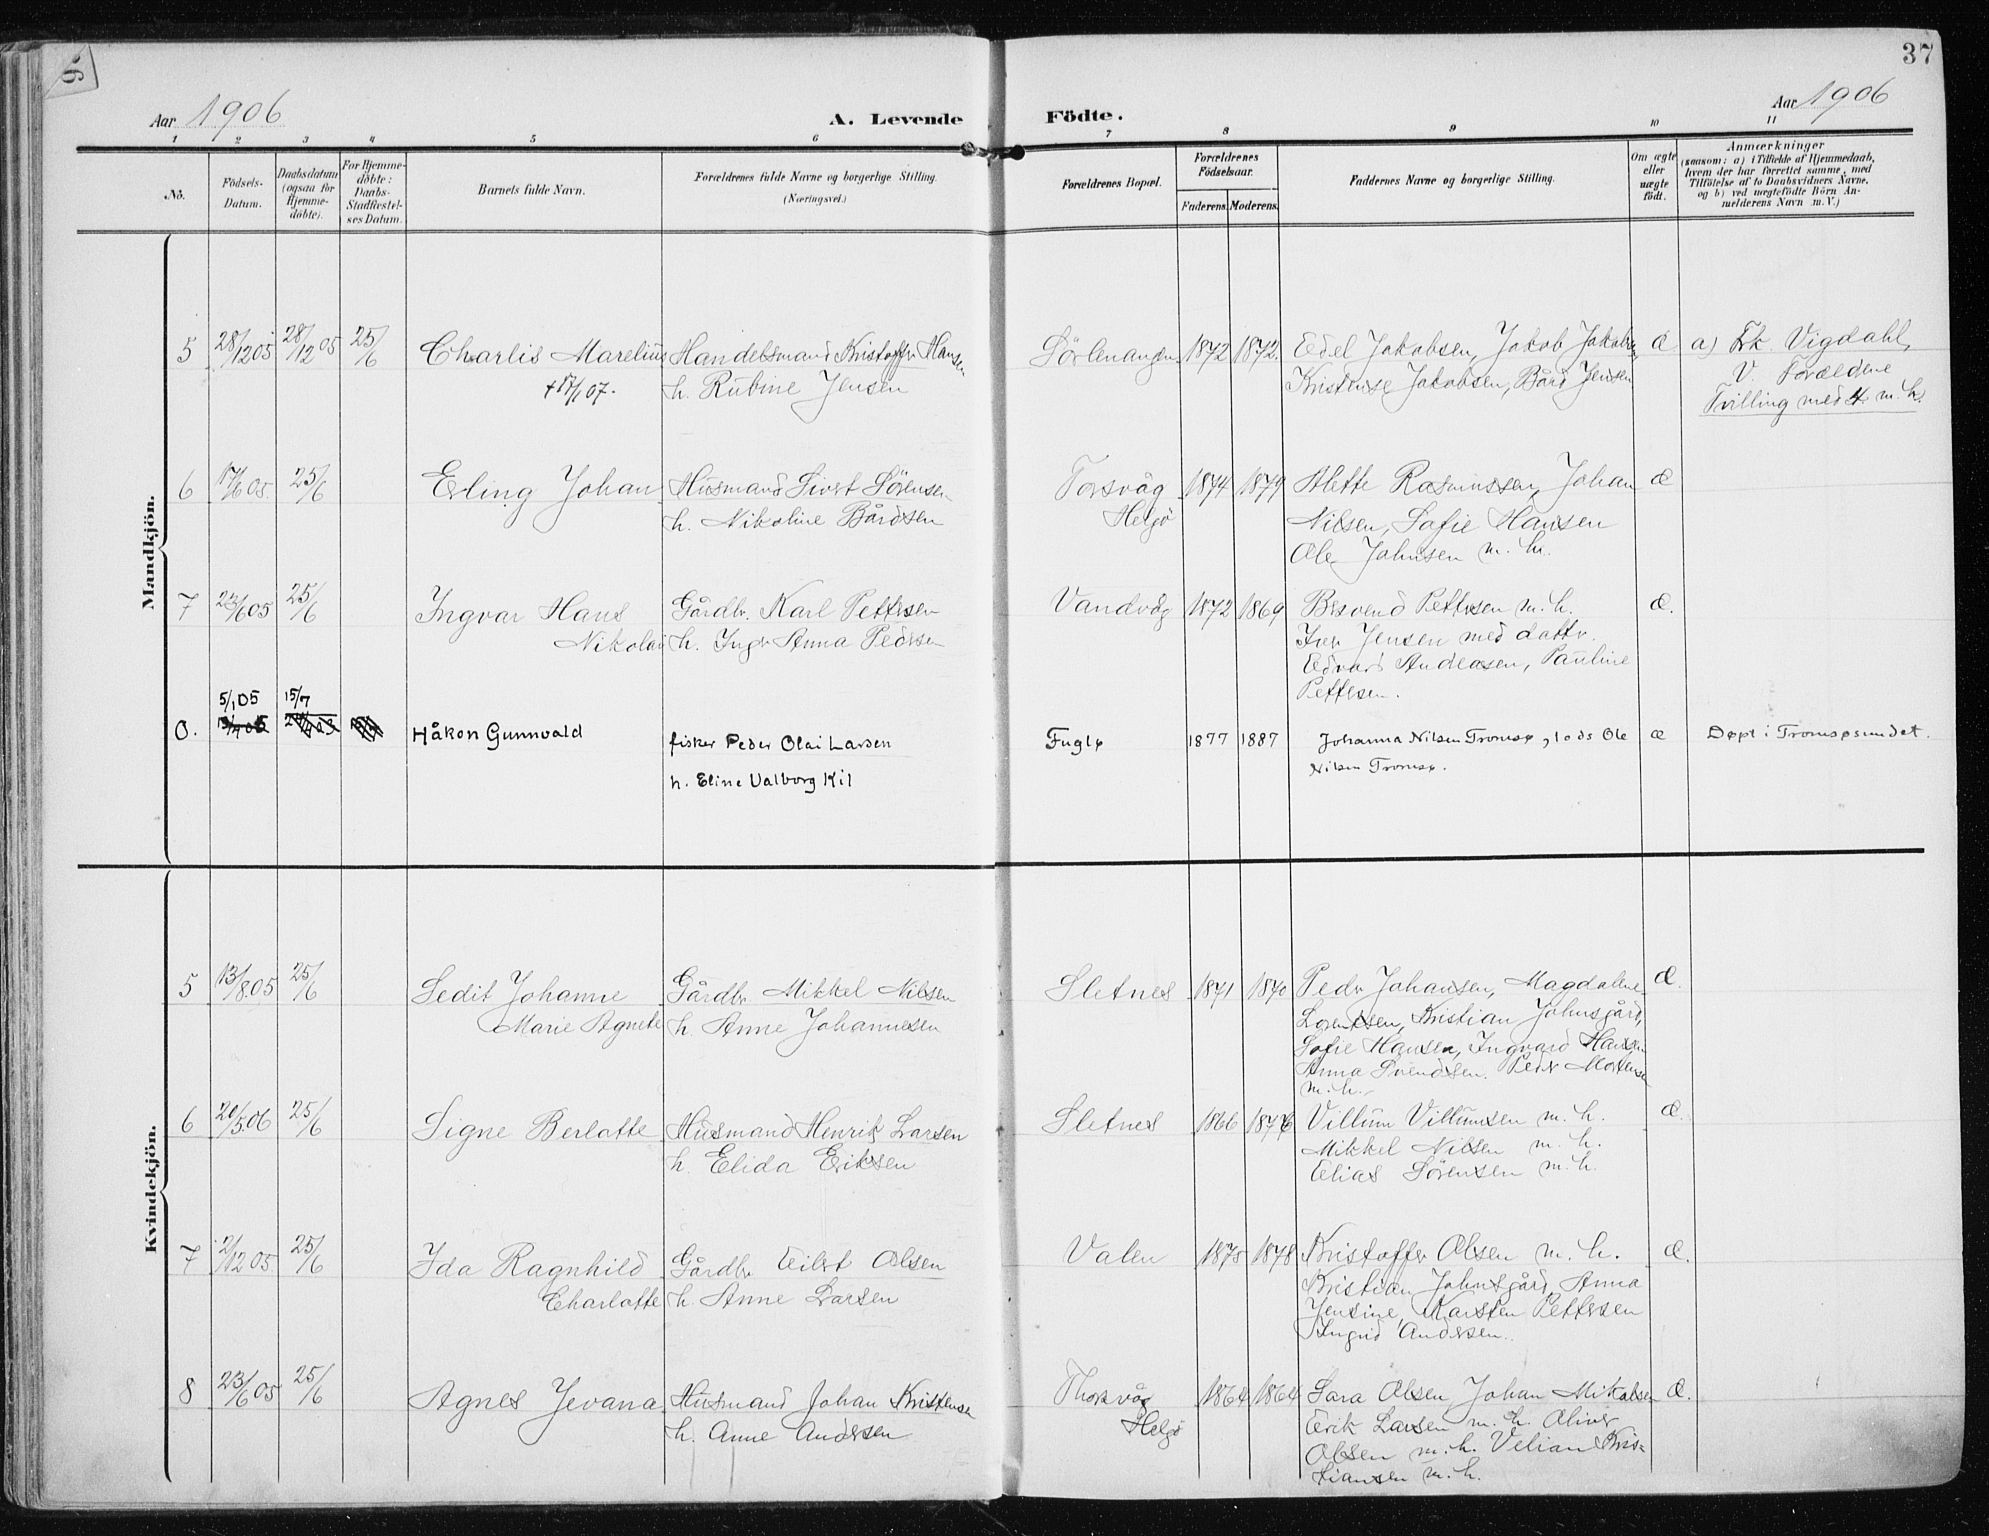 37
Aar 1906
A. Levende
Födte.
Aar 1906
1 2 3 4 5 6 7 8 9 10 11
No.
Födsels-
Datum.
Daabsdatum
(ogsaa for
Hjemme-
döbte).
For Hjemme-
döbte:
Daabs-
Stadfæstel-
ses Datum.
Barnets fulde Navn.
Forældrenes fulde Navne og borgerlige Stilling.
(Næringsvei.)
Forældrenes Bopæl.
Forældrenes
Födselsaar.
Faderens. Moderens.
Faddernes Navne og borgerlige Stilling.
Om ægte
eller
uægte
födt.
Anmærkninger
(saasom: a) i Tilfælde af Hjemmedaab,
hvem der har forrettet samme, med
Tilföielse af to Daabsvidners Navne,
og b) ved uægtefödte Börn An-
melderens Navn m. V.)
Mandkjön.
5 28/12 05 28/12 05 25/6 Charlis Marelius Handelsmand Kristoffr Hansen Sörlenangen 1872 1872. Edel Jakobsen, Jakob Jakobsen æ a) Frk Vigdahl,
+ 17/1 07. h. Rubine Jensen Kristense Jakobsen, Bård Jensen V. Forældene
Tvilling med 4 m. k.
6 17/6 05. 25/6 Erling Johan Husmand Sivert Sörensen Torsvåg 1874 1879 Alette Rasmussen, Johan æ
h. Nikoline Bårdsen Helgö Nilsen, Sofie Hansen
Ole Johnsen m. h.
7 23/6 05 25/6 Ingvar Hans Gårdbr. Karl Pettersen Vandvåg 1872 1869 Besvend Pettersen m. h. æ.
Nikolai h. Ingr Anna Pedersen Iver Jensen med dattr.
Edvard Andeasen, Pauline
Pettesen.
5/1 05 15/7
0. Håkon Gunnvald fisker Peder Olai Larsen Fuglø 1877 1887 Johanna Nilsen Tromsø, lods Ole æ Døpt i Tromsøsundet.
h. Eline Valborg Kil Nilsen Tromsø.
Kvindekjön.
5 13/8.05 25/6 Sedit Johanne Gårdbr. Mikkel Nilsen Sletnes 1871 1870 Pedr Johansen, Magdalene æ.
Marie Agnete h. Anne Johannesen Lorentsen, Kristian Johnsgård,
Sofie Hansen, Ingvard Hansen
Anna Svendsen. Pedr Mortensen
m. h.
6 20/5.06 25/6 Signe Berlotte Husmand Henrik Larsen Sletnes 1866 1876 Villum Villumsen m. h. æ.
h. Elida Eriksen Mikkel Nilsen m. h.
Elias Sörensen m. h.
7 2/12 05. 25/6 Ida Ragnhild Gårdbr. Eilert Olsen Valen 1875 1878 Kristoffer Olsen m. h. æ.
Charlotte h. Anne Larsen Kristian Johnsgård, Anna
Jensine, Karsten Pettersen
Ingrid Andersen.
8 23/6 05 25/6 Agnes Jevana Husmand Johan Kristensen Thorsvåg 1864 1864 Sara Olsen, Johan Mikalsen æ.
h. Anne Andersen Helgö Erik Larsen m. h. Oliver
Olsen m. h. Velian Kris-
tiansen m. h.